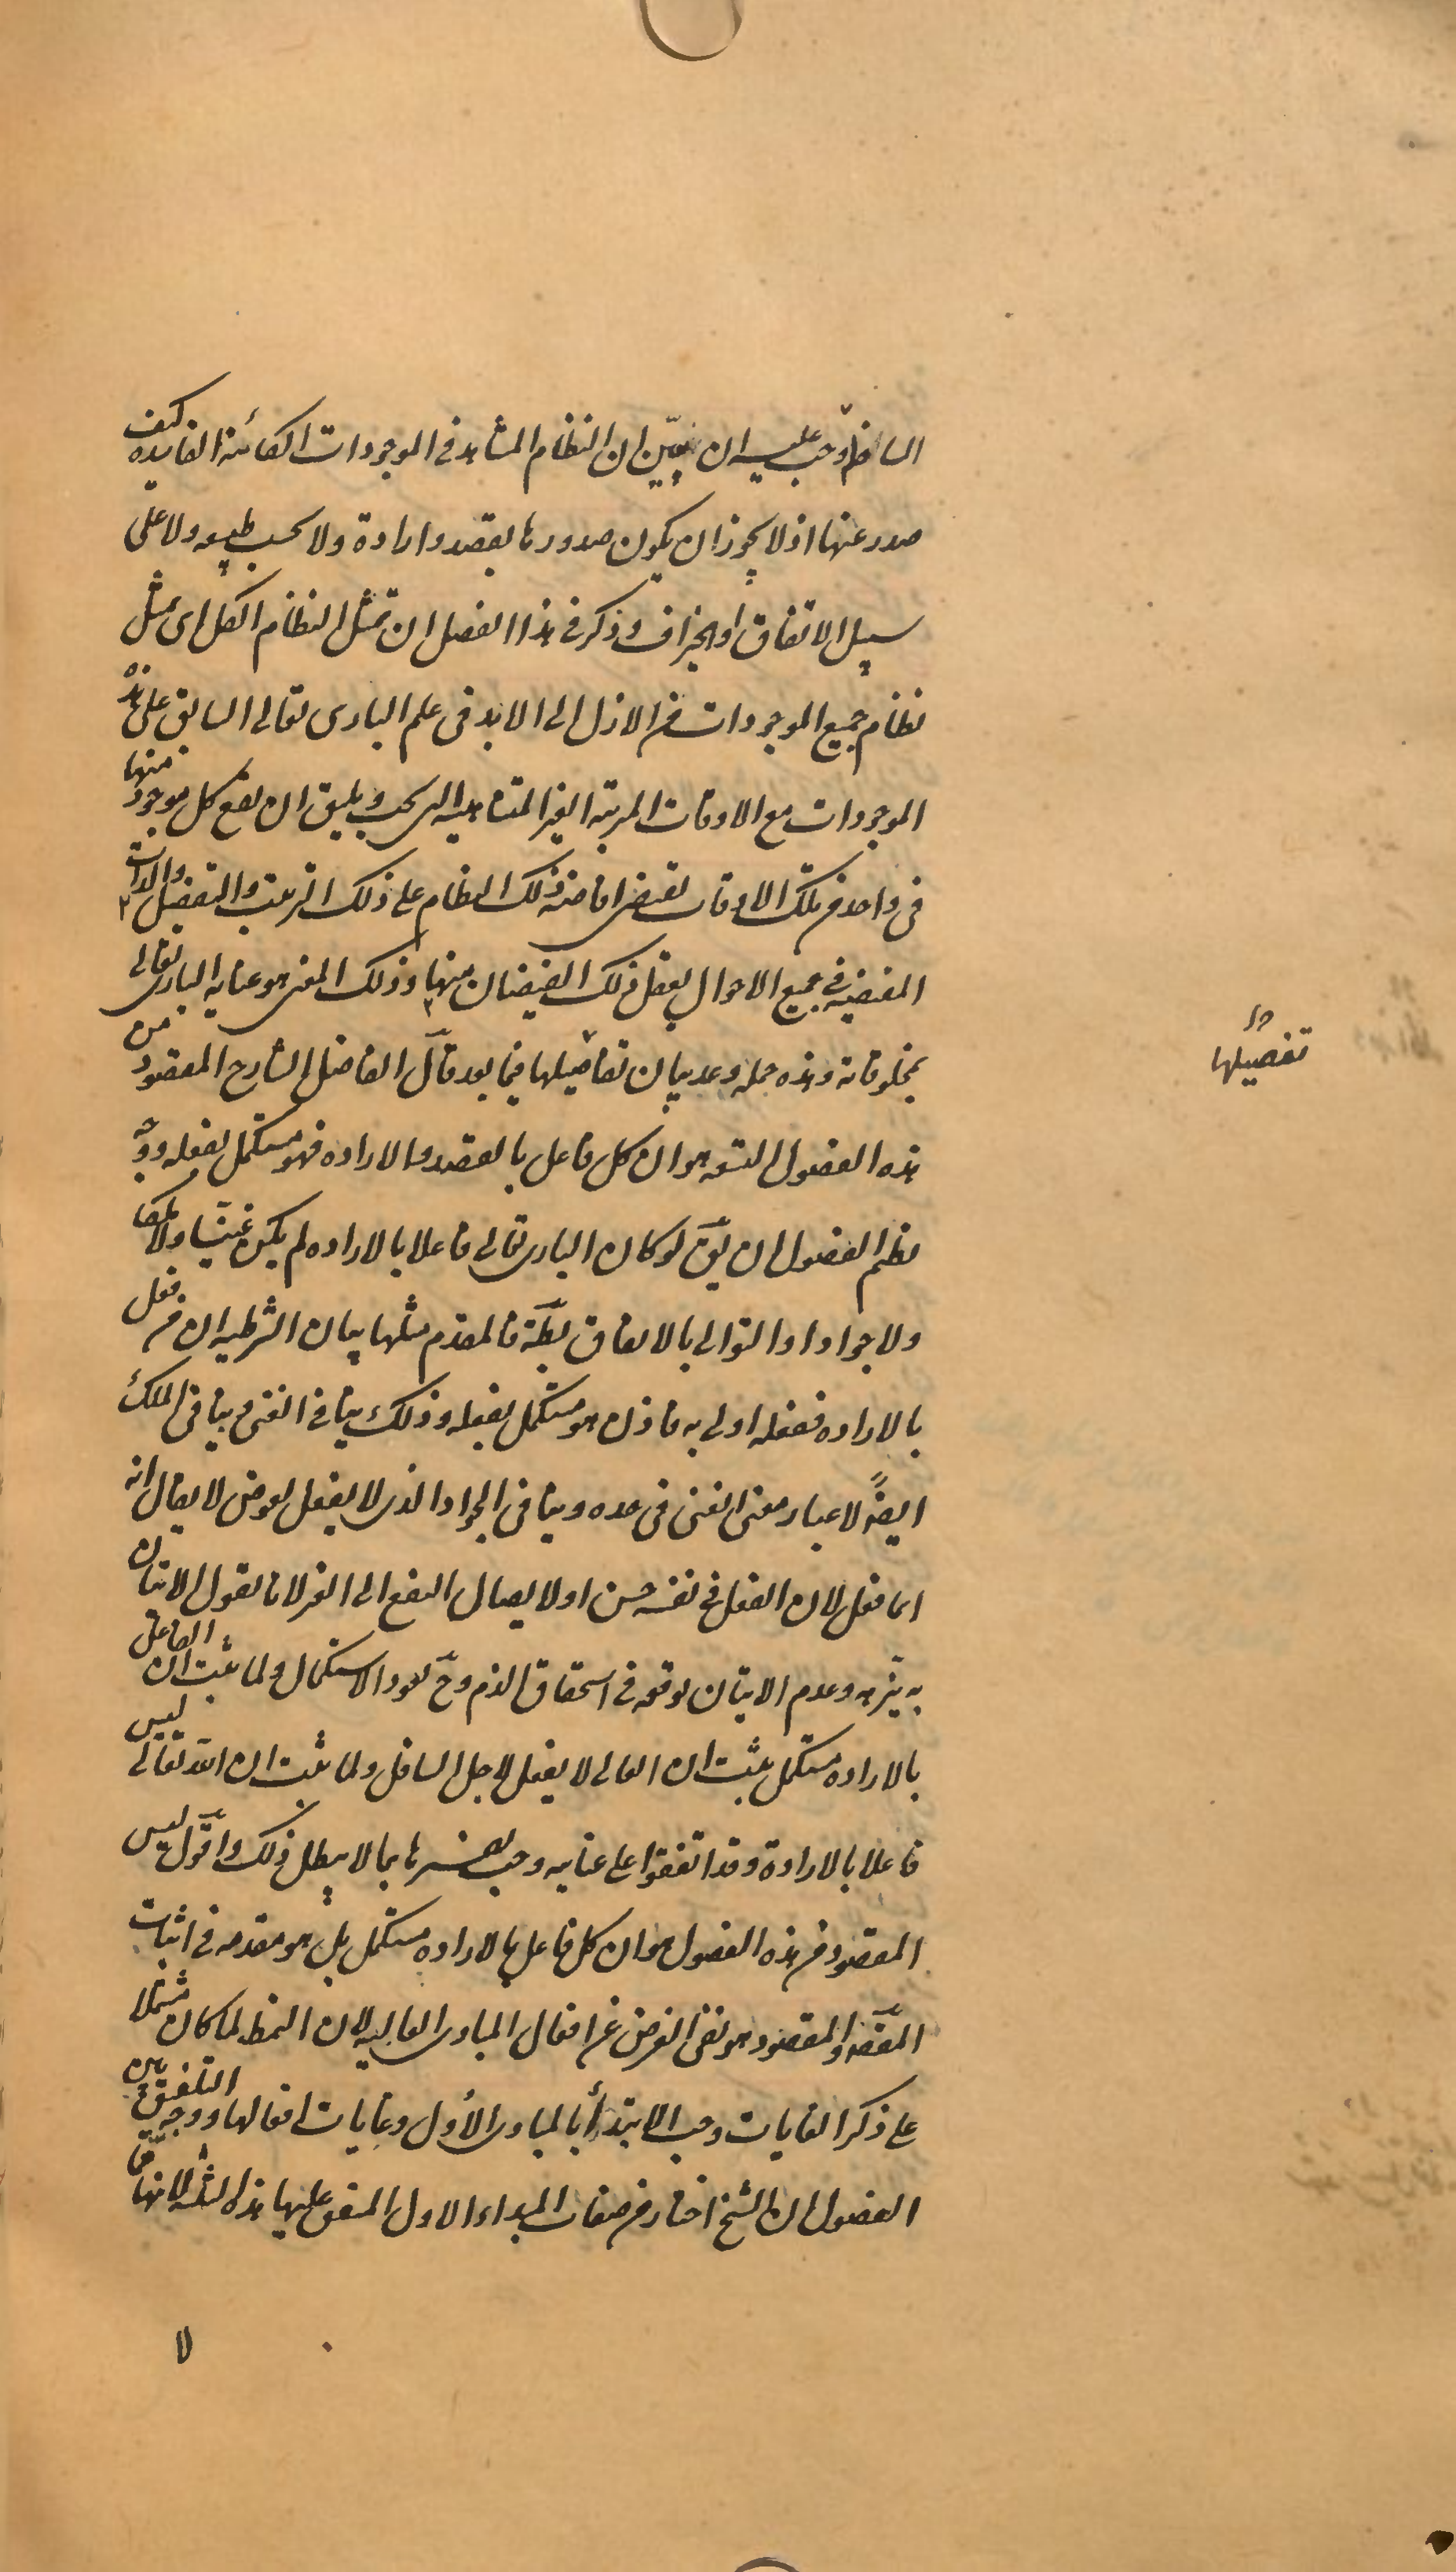 السافل وجب عليه ان يبين ان النظام المشاهد فى الموجودات الكائنة الفاسدة كيف
صدر عنها اذ لا يجوز ان يكون صدورها بقصد وارادة ولا بحسب طبيعه ولا على
سبيل الاتفاق او الجزاف وذكر فى هذا الفصل ان تمثل النظام الكل اى تمثل
نظام جميع الموجودات من الازل الى الابد فى علم البارى تعالى السابق على هذه
الموجودات مع الاوقات المرتبة الغير المتناهيه التى يجب ويليق ان يقع كل موجود منها
فى واحد من تلك الاوقات يقتضى افاضة ذلك النظام على ذلك الترتيب والتفصيل والذات
المقتضيه فى جميع الاحوال يعقل ذلك الفيضان منها وذلك المعنى هو عنايه البارى تعالى
بمخلوقاته وهذه جمله وعد بيان تفاصيلها فيما بعد قال الفاضل الشارح المقصود من
هذه الفصول التسعه هو ان كل فاعل بالقصد والاراده فهو مستكمل بفعله ووجه
نظم الفصول ان يق لو كان البارى تعالى فاعلا بالاراده لم يكن غنيا ولا ملكا
ولا جوادا والتوالى بالاتفاق بطة فالمقدم مثلها بيان الشرطيه ان من فعل
بالاراده ففعله اولى به فاذن هو مستكمل بفعله وذلك ينافى الغنى وينافى الملك
ايضاً لاعتبار معنى الغنى فى حده وينافى الجواد الذى لا يفعل لعوض لا يقال انه
انما فعل لان الفعل فى نفسه حسن او لايصال النفع الى الغير لانا نقول الاتيان
به ينزهه وعدم الاتيان يوقعه فى استحقاق الذم وح يعود الاستكمال ولما ثبت ان الفاعل
بالاراده مستكمل ثبت ان العالى لا يفعل لاجل السافل ولما ثبت ان الله تعالى ليس
فاعلا بالارادة وقد اتفقوا على عنايه وجب تفسيرها بما لا يبطل ذلك واقول ليس
المقصود من هذه الفصول هو ان كل فاعل بالاراده مستكمل بل هو مقدمه فى اثبات
المقصود والمقصود هو نفى الغرض عن افعال المبادى العاليه لان النمط لما كان مشتملا
على ذكر الغايات وجب الابتداء بالمبادى الأول وغايات افعالها ووجه التلفيق بين
الفصول ان الشيخ اختار من صفات المبداء الاول المتفق عليها هذه الثلثه لانها
تفصيلها
لا